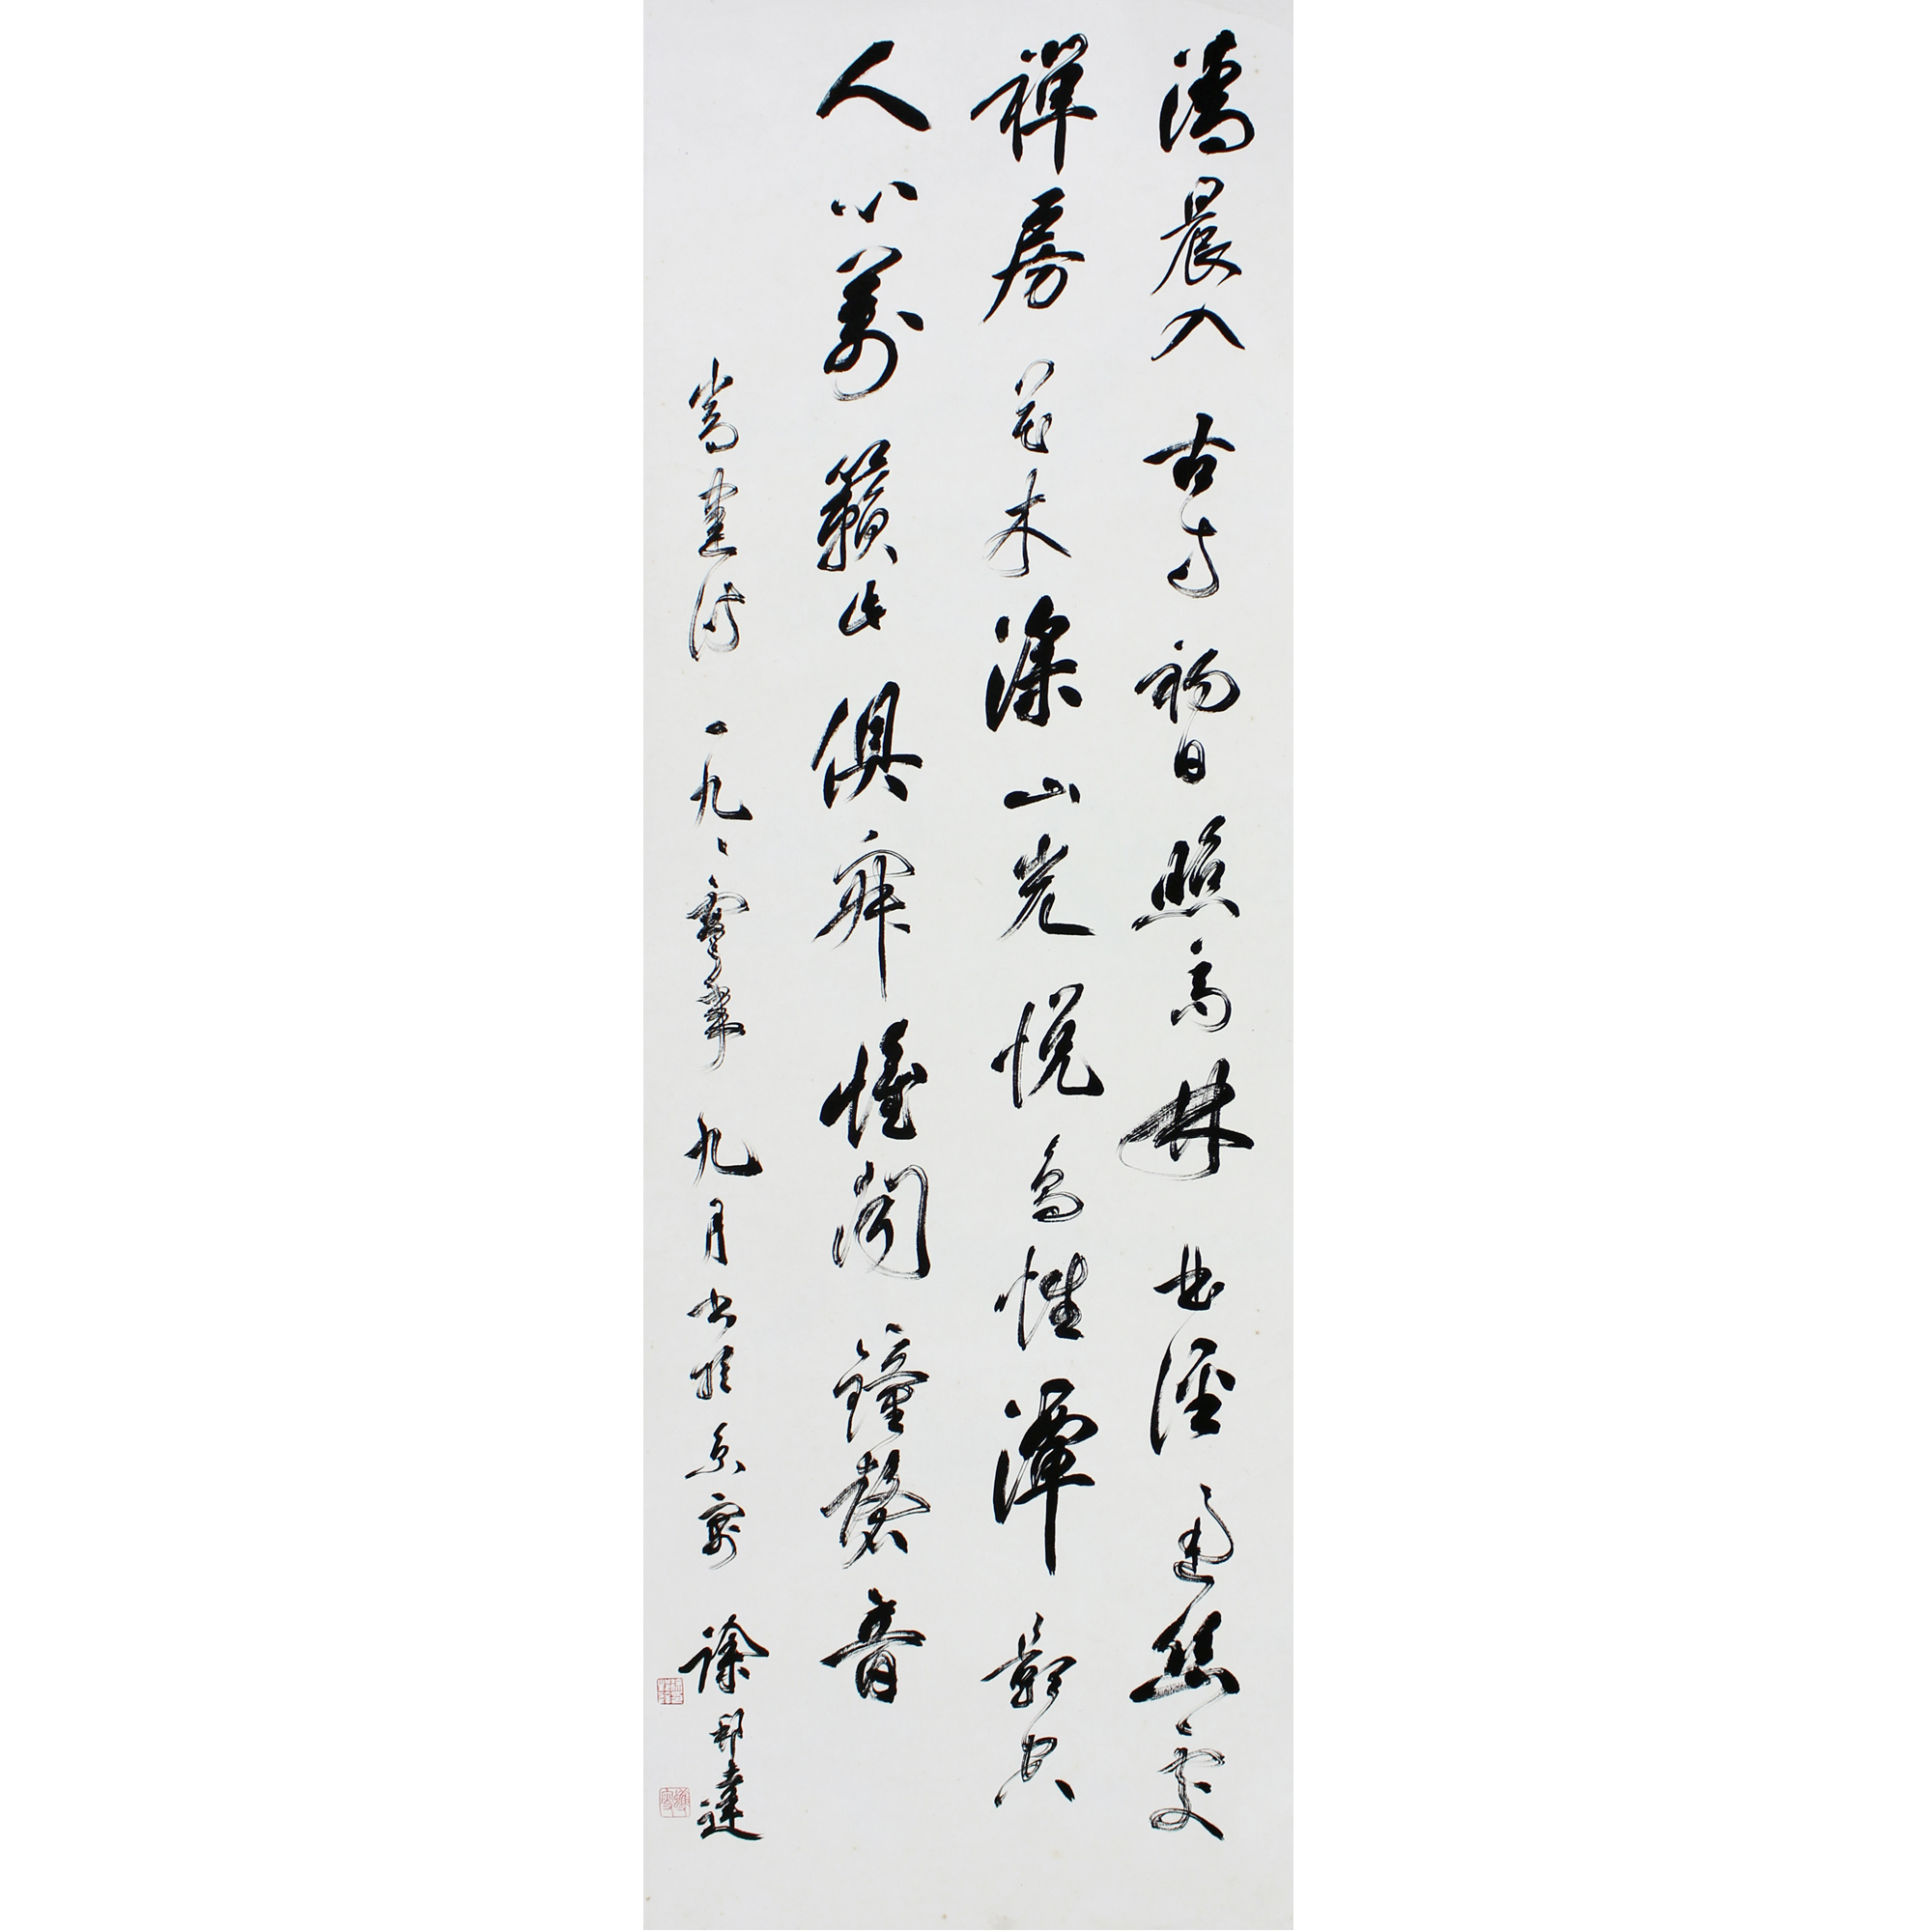 清晨入古寺初日照高林曲徑通幽處
禪房花木深山光悅鳥性潭影空
人心萬籟此俱寂惟聞鐘磬音
常建詩一九、零年九月書於京寓徐邦達